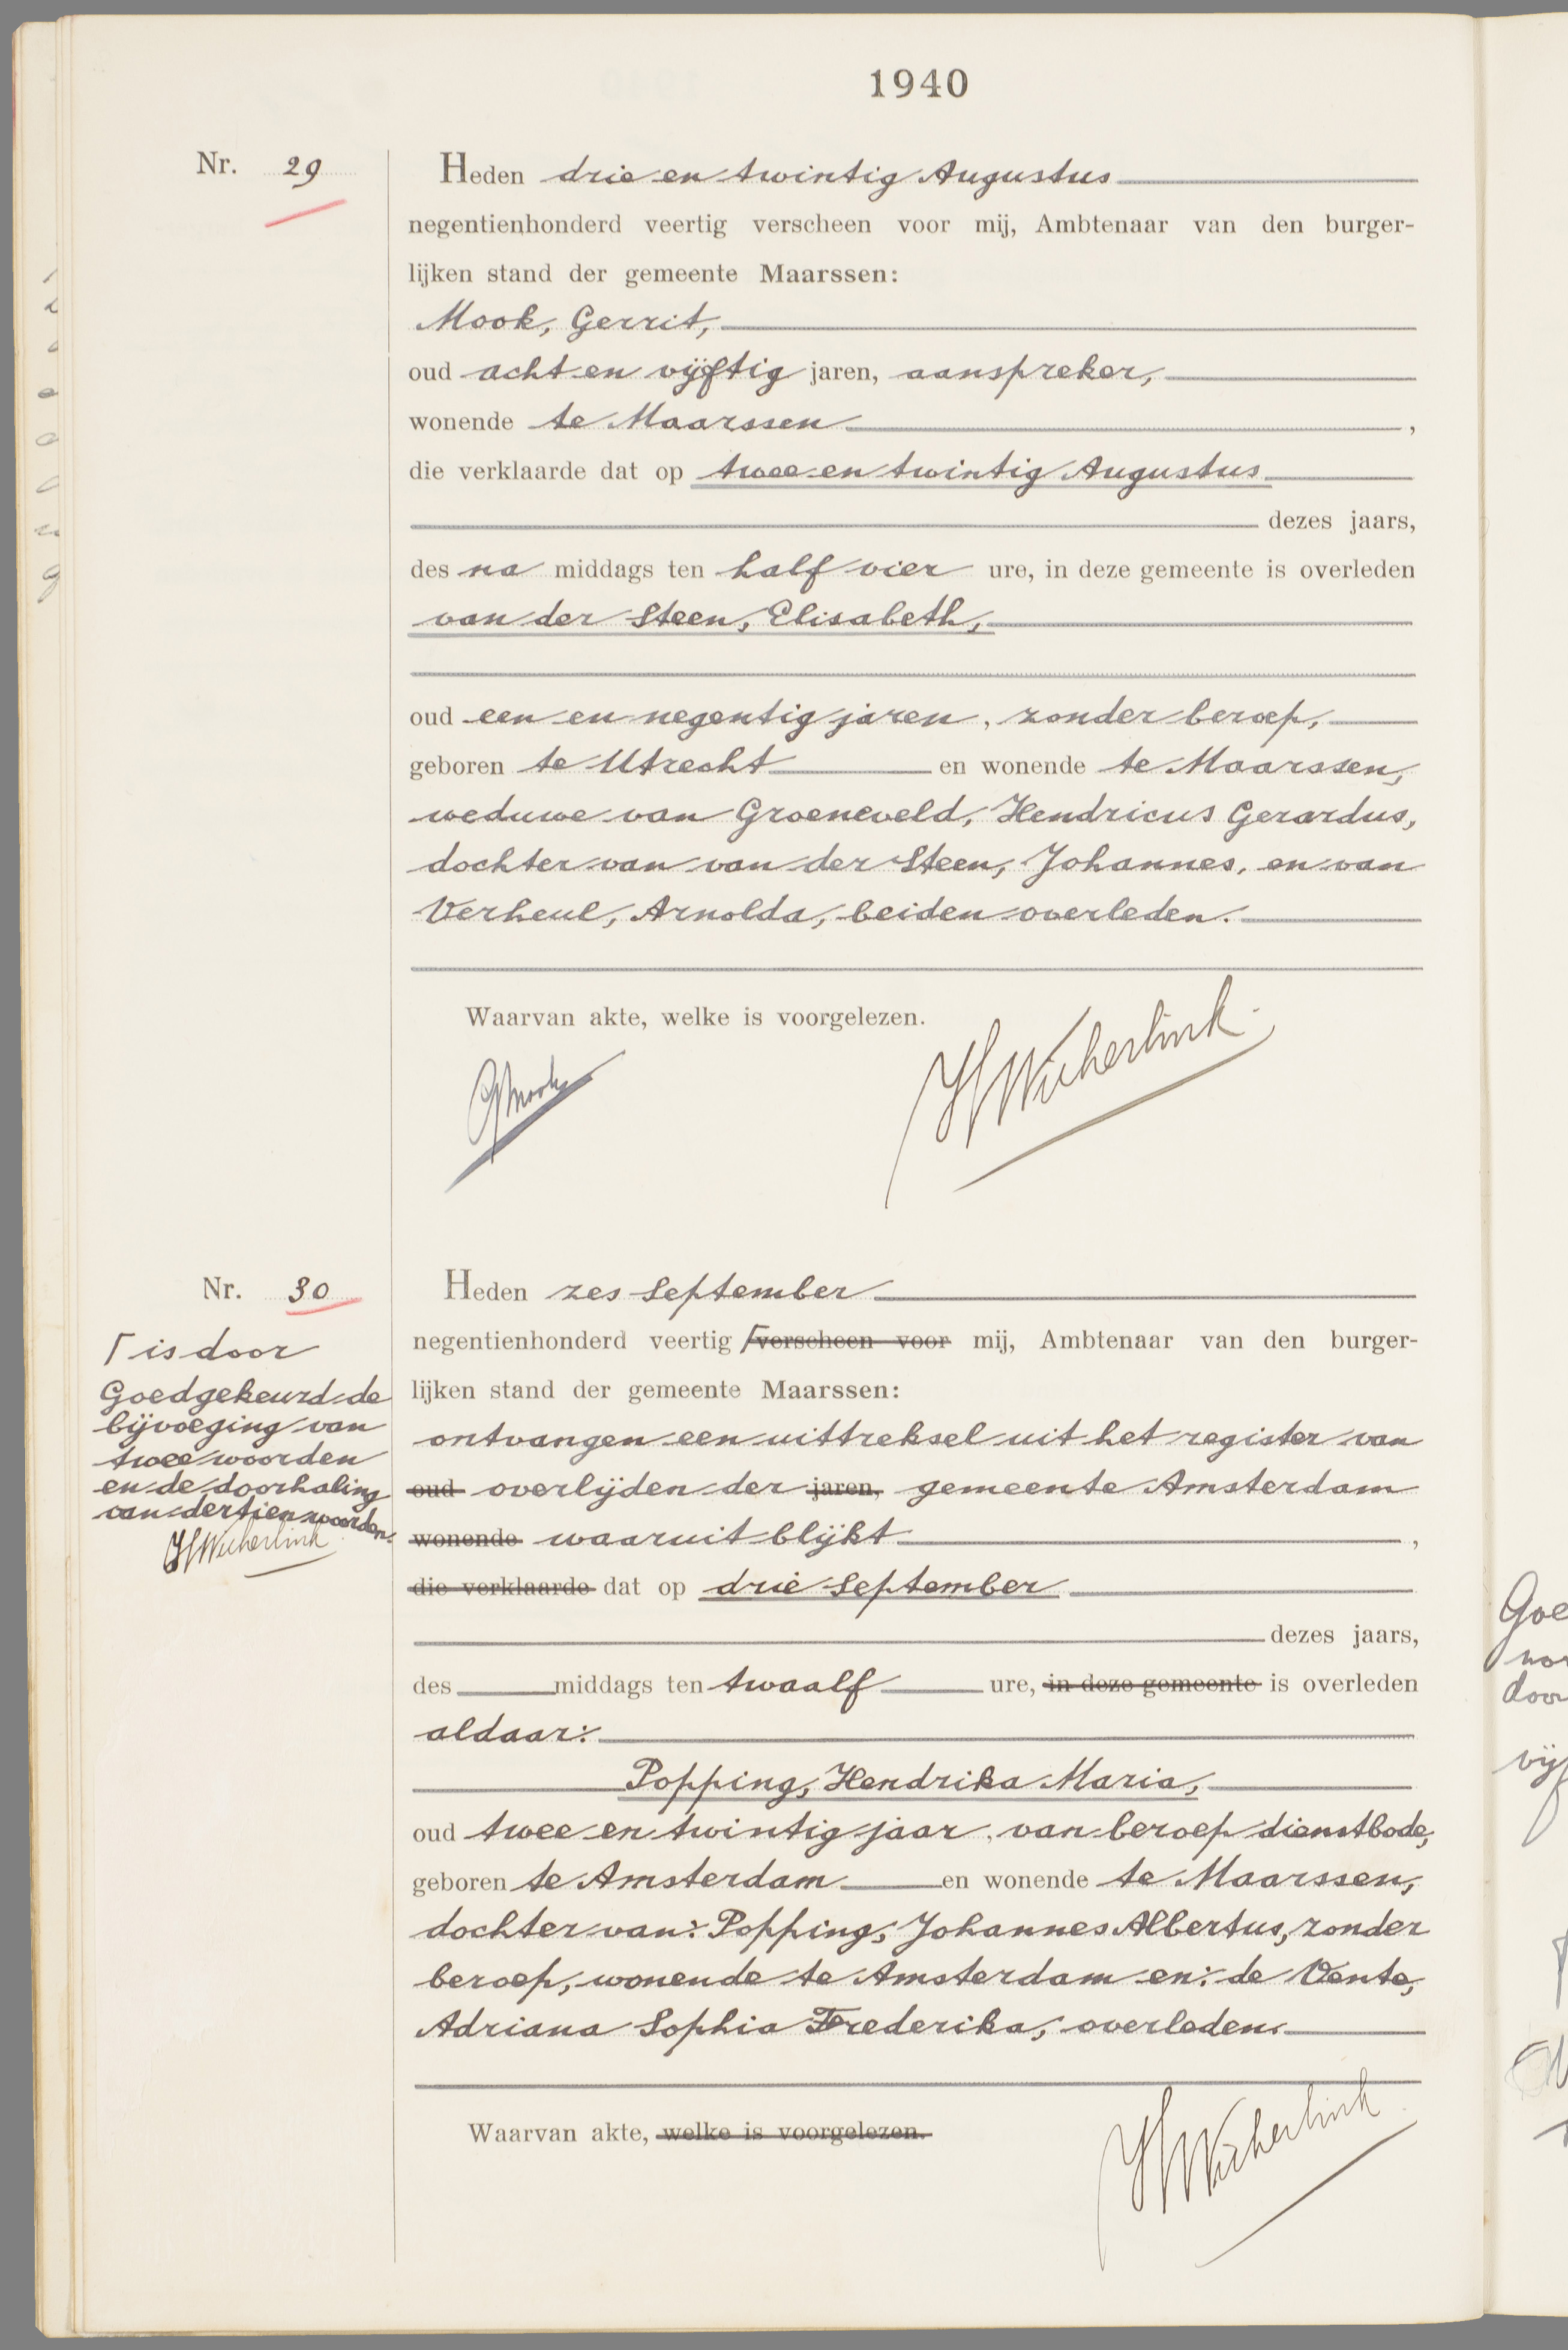 1940
Nr. 29
Heden drie en twintig Augustus
negentienhonderd veertig verscheen voor mij, Ambtenaar van den burger-
lijken stand der gemeente Maarssen:
Mook, Gerrit,
oud acht en vijftig jaren, aanspreker,
wonende te Maarssen,
die verklaarde dat op twee en twintig Augustus
dezes jaars,
des na middags ten half vier ure, in deze gemeente is overleden
van der Steen, Elisabeth,
oud een en negentig jaren, zonder beroep,
geboren te Utrecht en wonende te Maarssen,
weduwe van Groeneveld, Hendricus Gerardus,
dochter van van der Steen, Johannes, en van
Verheul, Arnolda, beiden overleden.
Waarvan akte, welke is voorgelezen.
GMook
Nr. 30
Heden zes September
negentienhonderd veertig ┌verscheen voor mij, Ambtenaar van den burger-
lijken stand der gemeente Maarssen:
ontvangen een uittreksel uit het register van
oud overlijden der jaren, gemeente Amsterdam
wonende waaruit blijkt,
die verklaarde dat op drie September
dezes jaars,
des middags ten twaalf ure, in deze gemeente is overleden
aldaar:
Popping, Hendrika Maria,
oud twee en twintig jaar, van beroep dienstbode,
geboren te Amsterdam en wonende te Maarssen,
dochter van: Popping, Johannes Albertus, zonder
beroep, wonende te Amsterdam en: de Vente,
Adriana Sophia Frederika, overleden.
Waarvan akte, welke is voorgelezen.
┌ is door
Goedgekeurd de
bijvoeging van
twee woorden
en de doorhaling
van dertien woorden.
Goe
doo